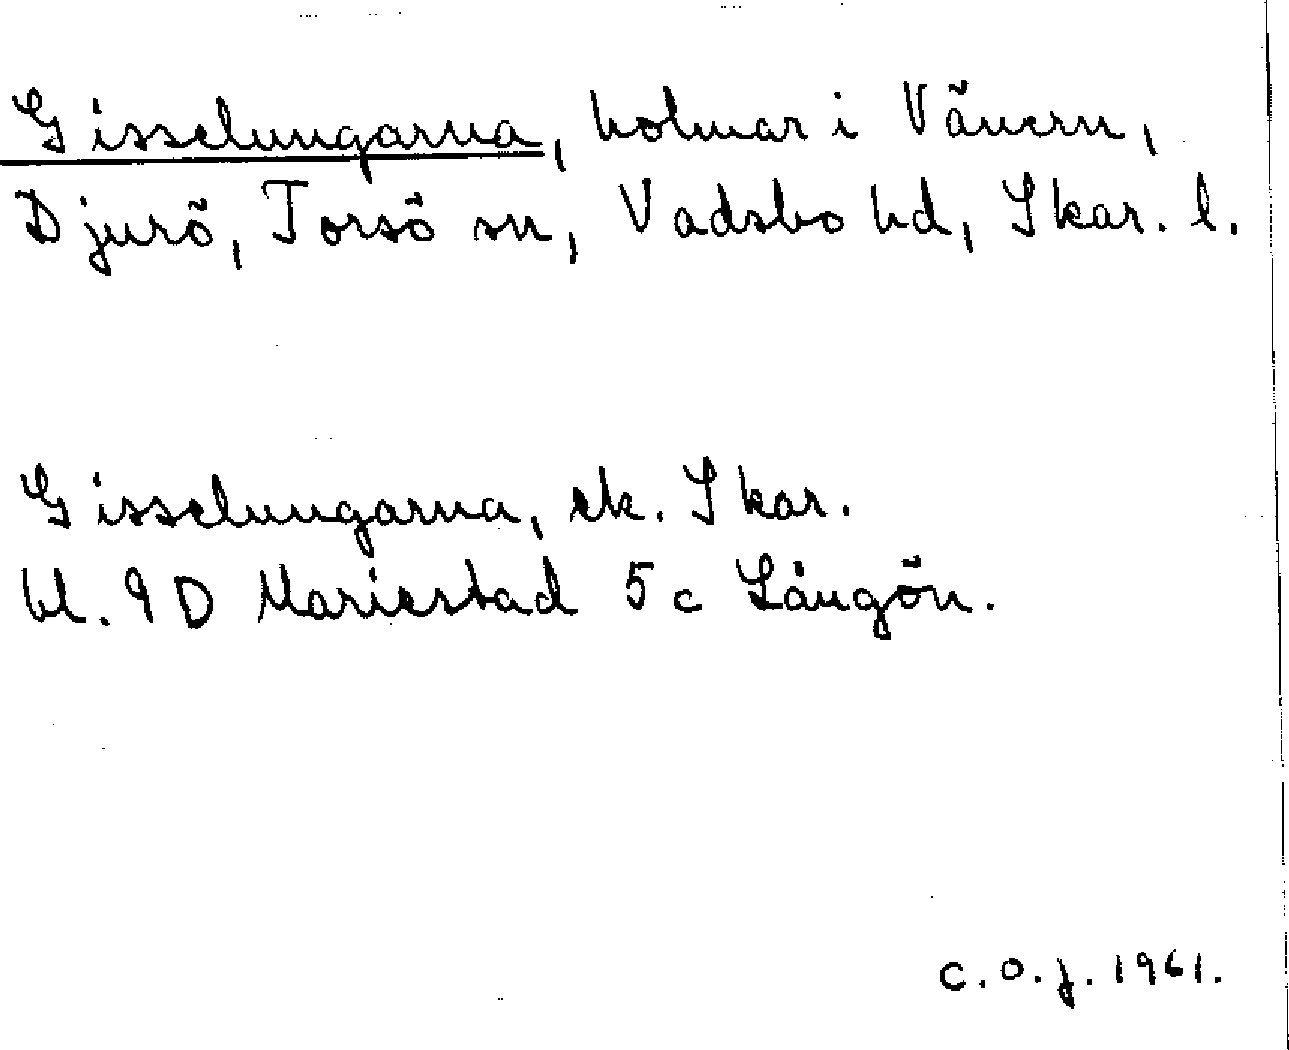 Gisselungarna, holmar i Vänern,
Djurö, Torsö sn, Vadsbo hd, Skar. l.
Gisselungarna, ek. Skar.
bl. 9D Mariestad 5c Långön.
C.O.J. 1961.